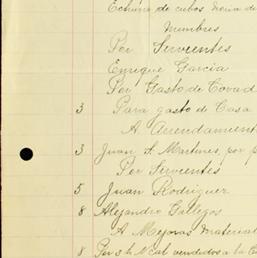 Echura de cubos
Mumbres
Por Servientes
Enrique Garcia
Por Gasto de
3 Para gasto de Casa
A Arrendamient
3 Juan A. Martines, por
Por Servientes
5 Juan Rodriguez
8 Alejandro Gallegos
A Mejoras Material
8 Por vendidos a la